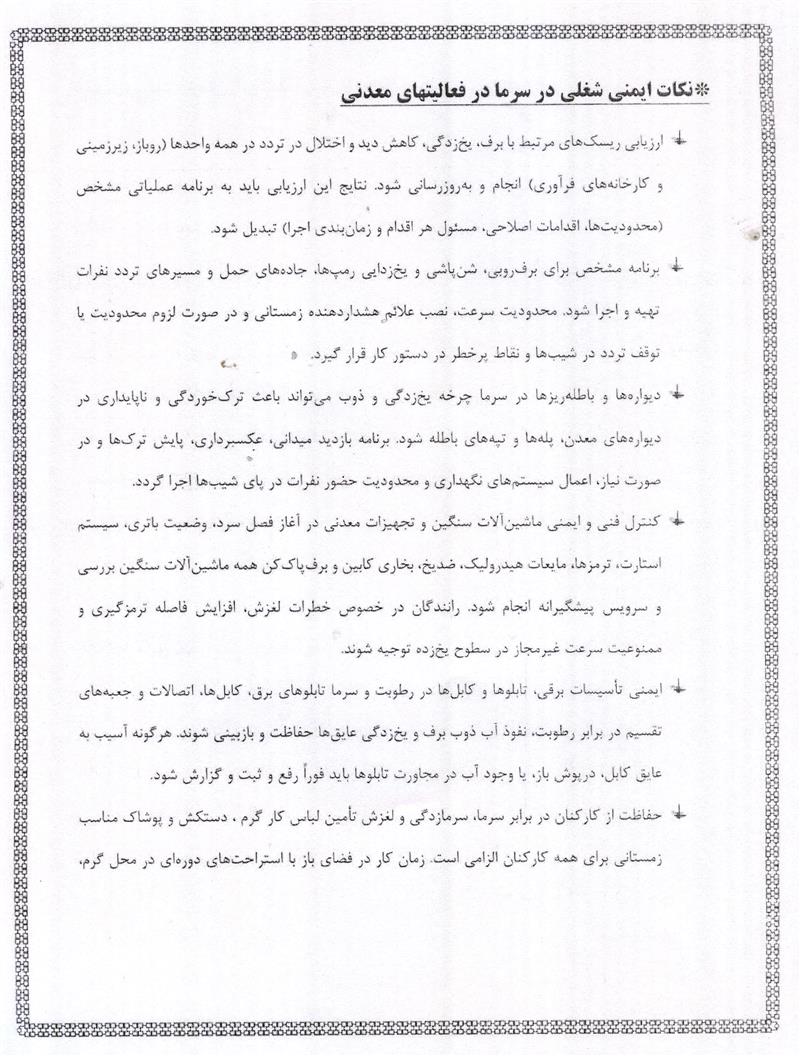 *نکات ایمنی شغلی در سرما در فعالیتهای معدنی
ارزیابی ریسک‌های مرتبط با برف، یخ‌زدگی، کاهش دید و اختلال در تردد در همه واحدها (روباز، زیرزمینی
و کارخانه‌های فرآوری) انجام و به‌روزرسانی شود. نتایج این ارزیابی باید به برنامه عملیاتی مشخص
(محدودیت‌ها، اقدامات اصلاحی، مسئول هر اقدام و زمان‌بندی اجرا) تبدیل شود.
برنامه مشخص برای برف‌روبی، شن‌پاشی و یخ‌زدایی رمپ‌ها، جاده‌های حمل و مسیرهای تردد نفرات
تهیه و اجرا شود. محدودیت سرعت، نصب علائم هشداردهنده زمستانی و در صورت لزوم محدودیت یا
توقف تردد در شیب‌ها و نقاط پرخطر در دستور کار قرار گیرد.
دیواره‌ها و باطله‌ریزها در سرما چرخه یخ‌زدگی و ذوب می‌تواند باعث ترک‌خوردگی و ناپایداری در
دیواره‌های معدن، پله‌ها و تپه‌های باطله شود. برنامه بازدید میدانی، عکسبرداری، پایش ترک‌ها و در
صورت نیاز، اعمال سیستم‌های نگهداری و محدودیت حضور نفرات در پای شیب‌ها اجرا گردد.
کنترل فنی و ایمنی ماشین‌آلات سنگین و تجهیزات معدنی در آغاز فصل سرد، وضعیت باتری، سیستم
استارت، ترمزها، مایعات هیدرولیک، ضدیخ، بخاری کابین و برف‌پاک‌کن همه ماشین‌آلات سنگین بررسی
و سرویس پیشگیرانه انجام شود. رانندگان در خصوص خطرات لغزش، افزایش فاصله ترمزگیری و
ممنوعیت سرعت غیرمجاز در سطوح یخ‌زده توجیه شوند.
ایمنی تأسیسات برقی، تابلوها و کابل‌ها در رطوبت و سرما تابلوهای برق، کابل‌ها، اتصالات و جعبه‌های
تقسیم در برابر رطوبت، نفوذ آب ذوب برف و یخ‌زدگی عایق‌ها حفاظت و بازبینی شوند. هرگونه آسیب به
عایق کابل، درپوش باز، یا وجود آب در مجاورت تابلوها باید فوراً رفع و ثبت و گزارش شود.
حفاظت از کارکنان در برابر سرما، سرمازدگی و لغزش تأمین لباس کار گرم ، دستکش و پوشاک مناسب
زمستانی برای همه کارکنان الزامی است. زمان کار در فضای باز با استراحت‌های دوره‌ای در محل گرم،